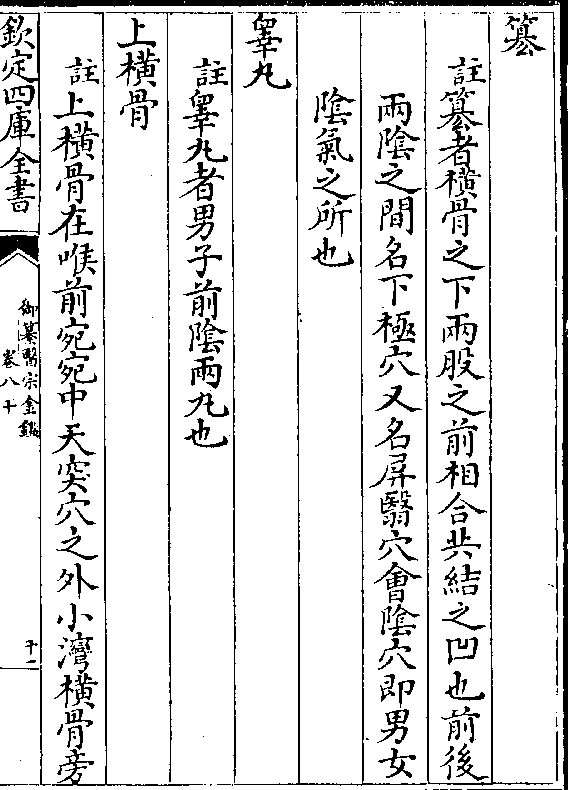 篡
註篡者橫骨之下兩股之前相合共結之凹也前後
兩陰之間名下極穴又名屏翳穴會陰穴即男女
陰氣之所也
睾丸
註睾丸者男子前陰兩丸也
上橫骨
註上橫骨在喉前宛宛中天突穴之外小灣橫骨旁
欽定四庫全書
御纂醫宗金鑑
卷八十
十一